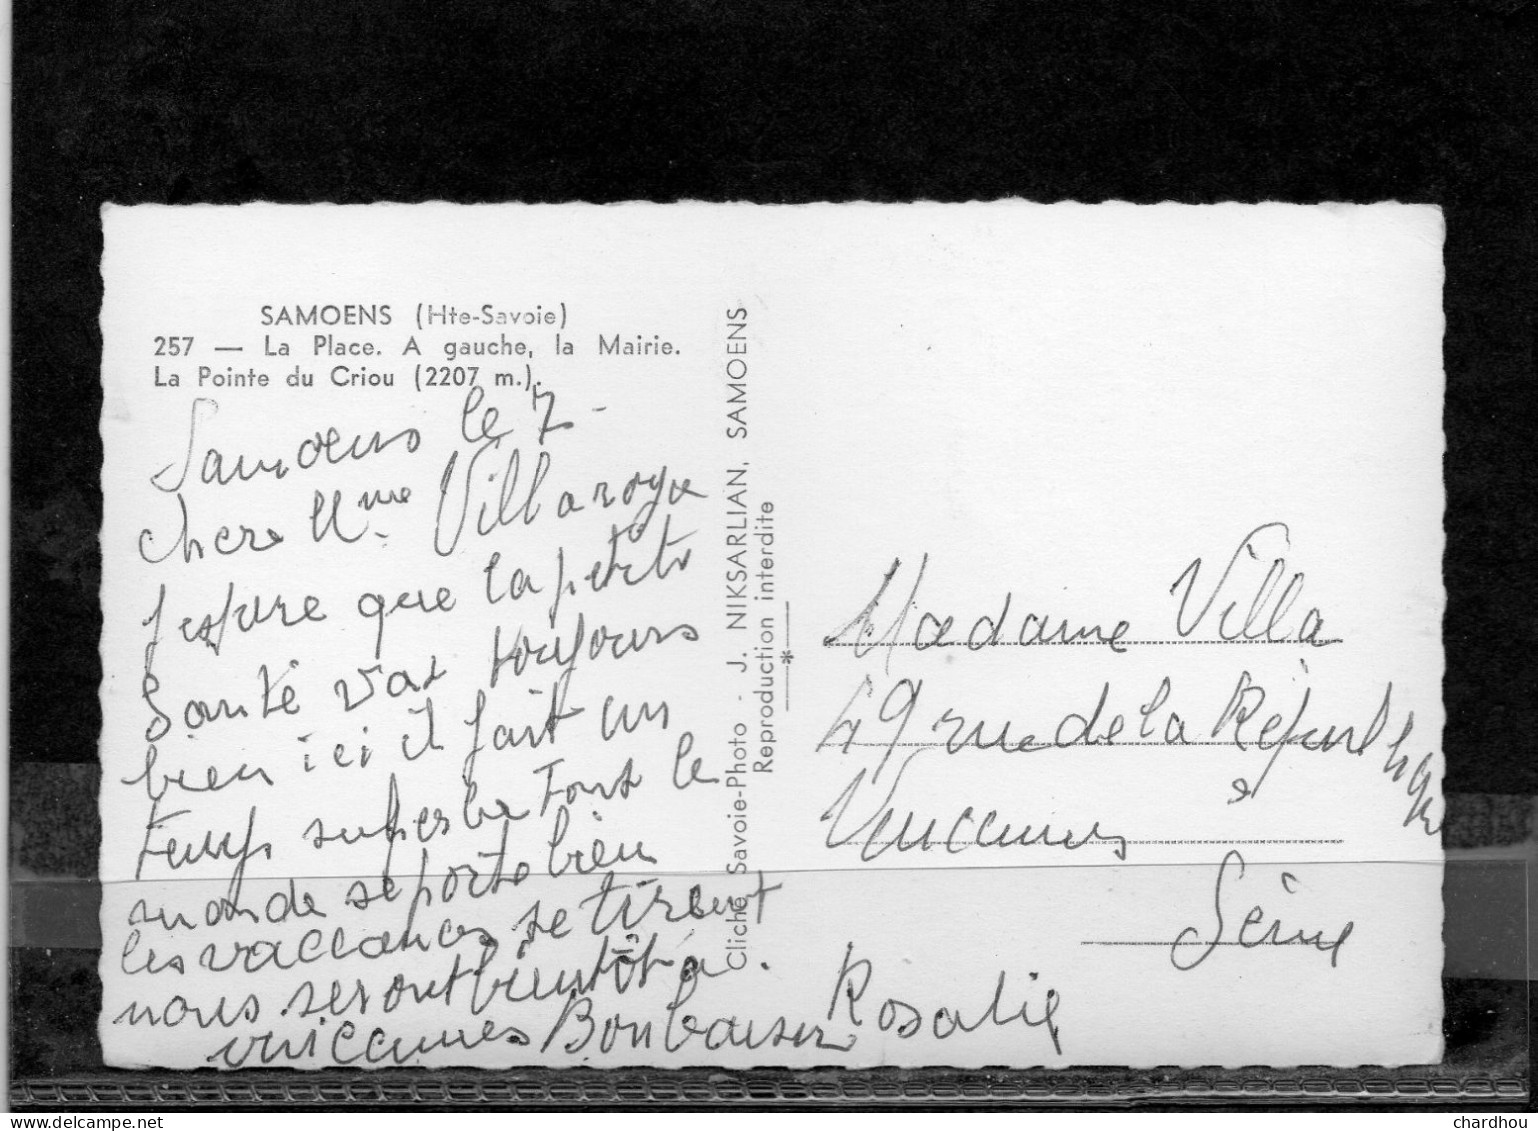 SAMOENS (Hte-Savoie)
257 — La Place. A gauche, la Mairie.
La Pointe du Criou (2207 m.).
Samoens le 7 -
chere Mme Villaroya
j espere que la petite
Santé vas toujours
bien ici il fait un
temps superbe tout le
monde se porte bien
les vaccances se tirent
nous seront bientôt a
vincennes Bon baiser Rosalie
Cliché Savoie-Photo - J. NIKSARLIAN, SAMOENS
Reproduction interdite
*
Madame Villa
49 rue de la République
Vincennes
Seine
www.delcampe.net
chardhou